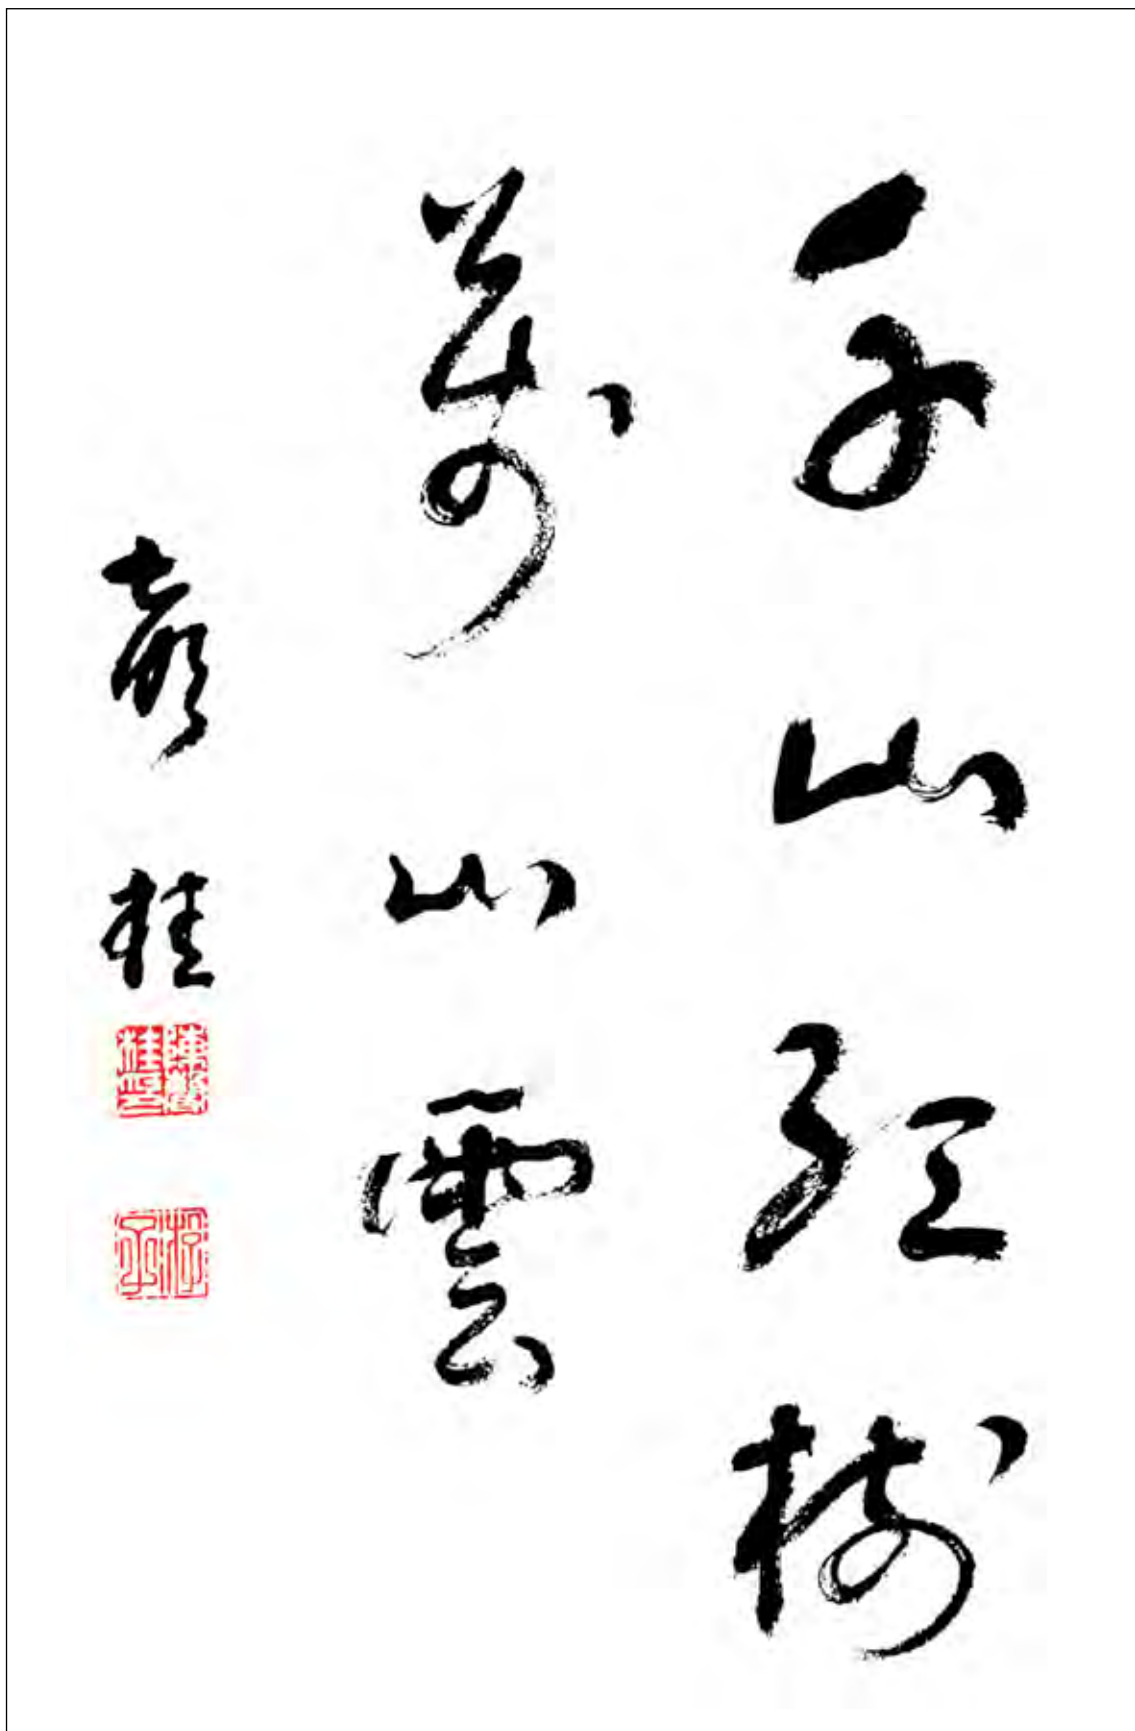 千山紅樹
萬山雲
桂